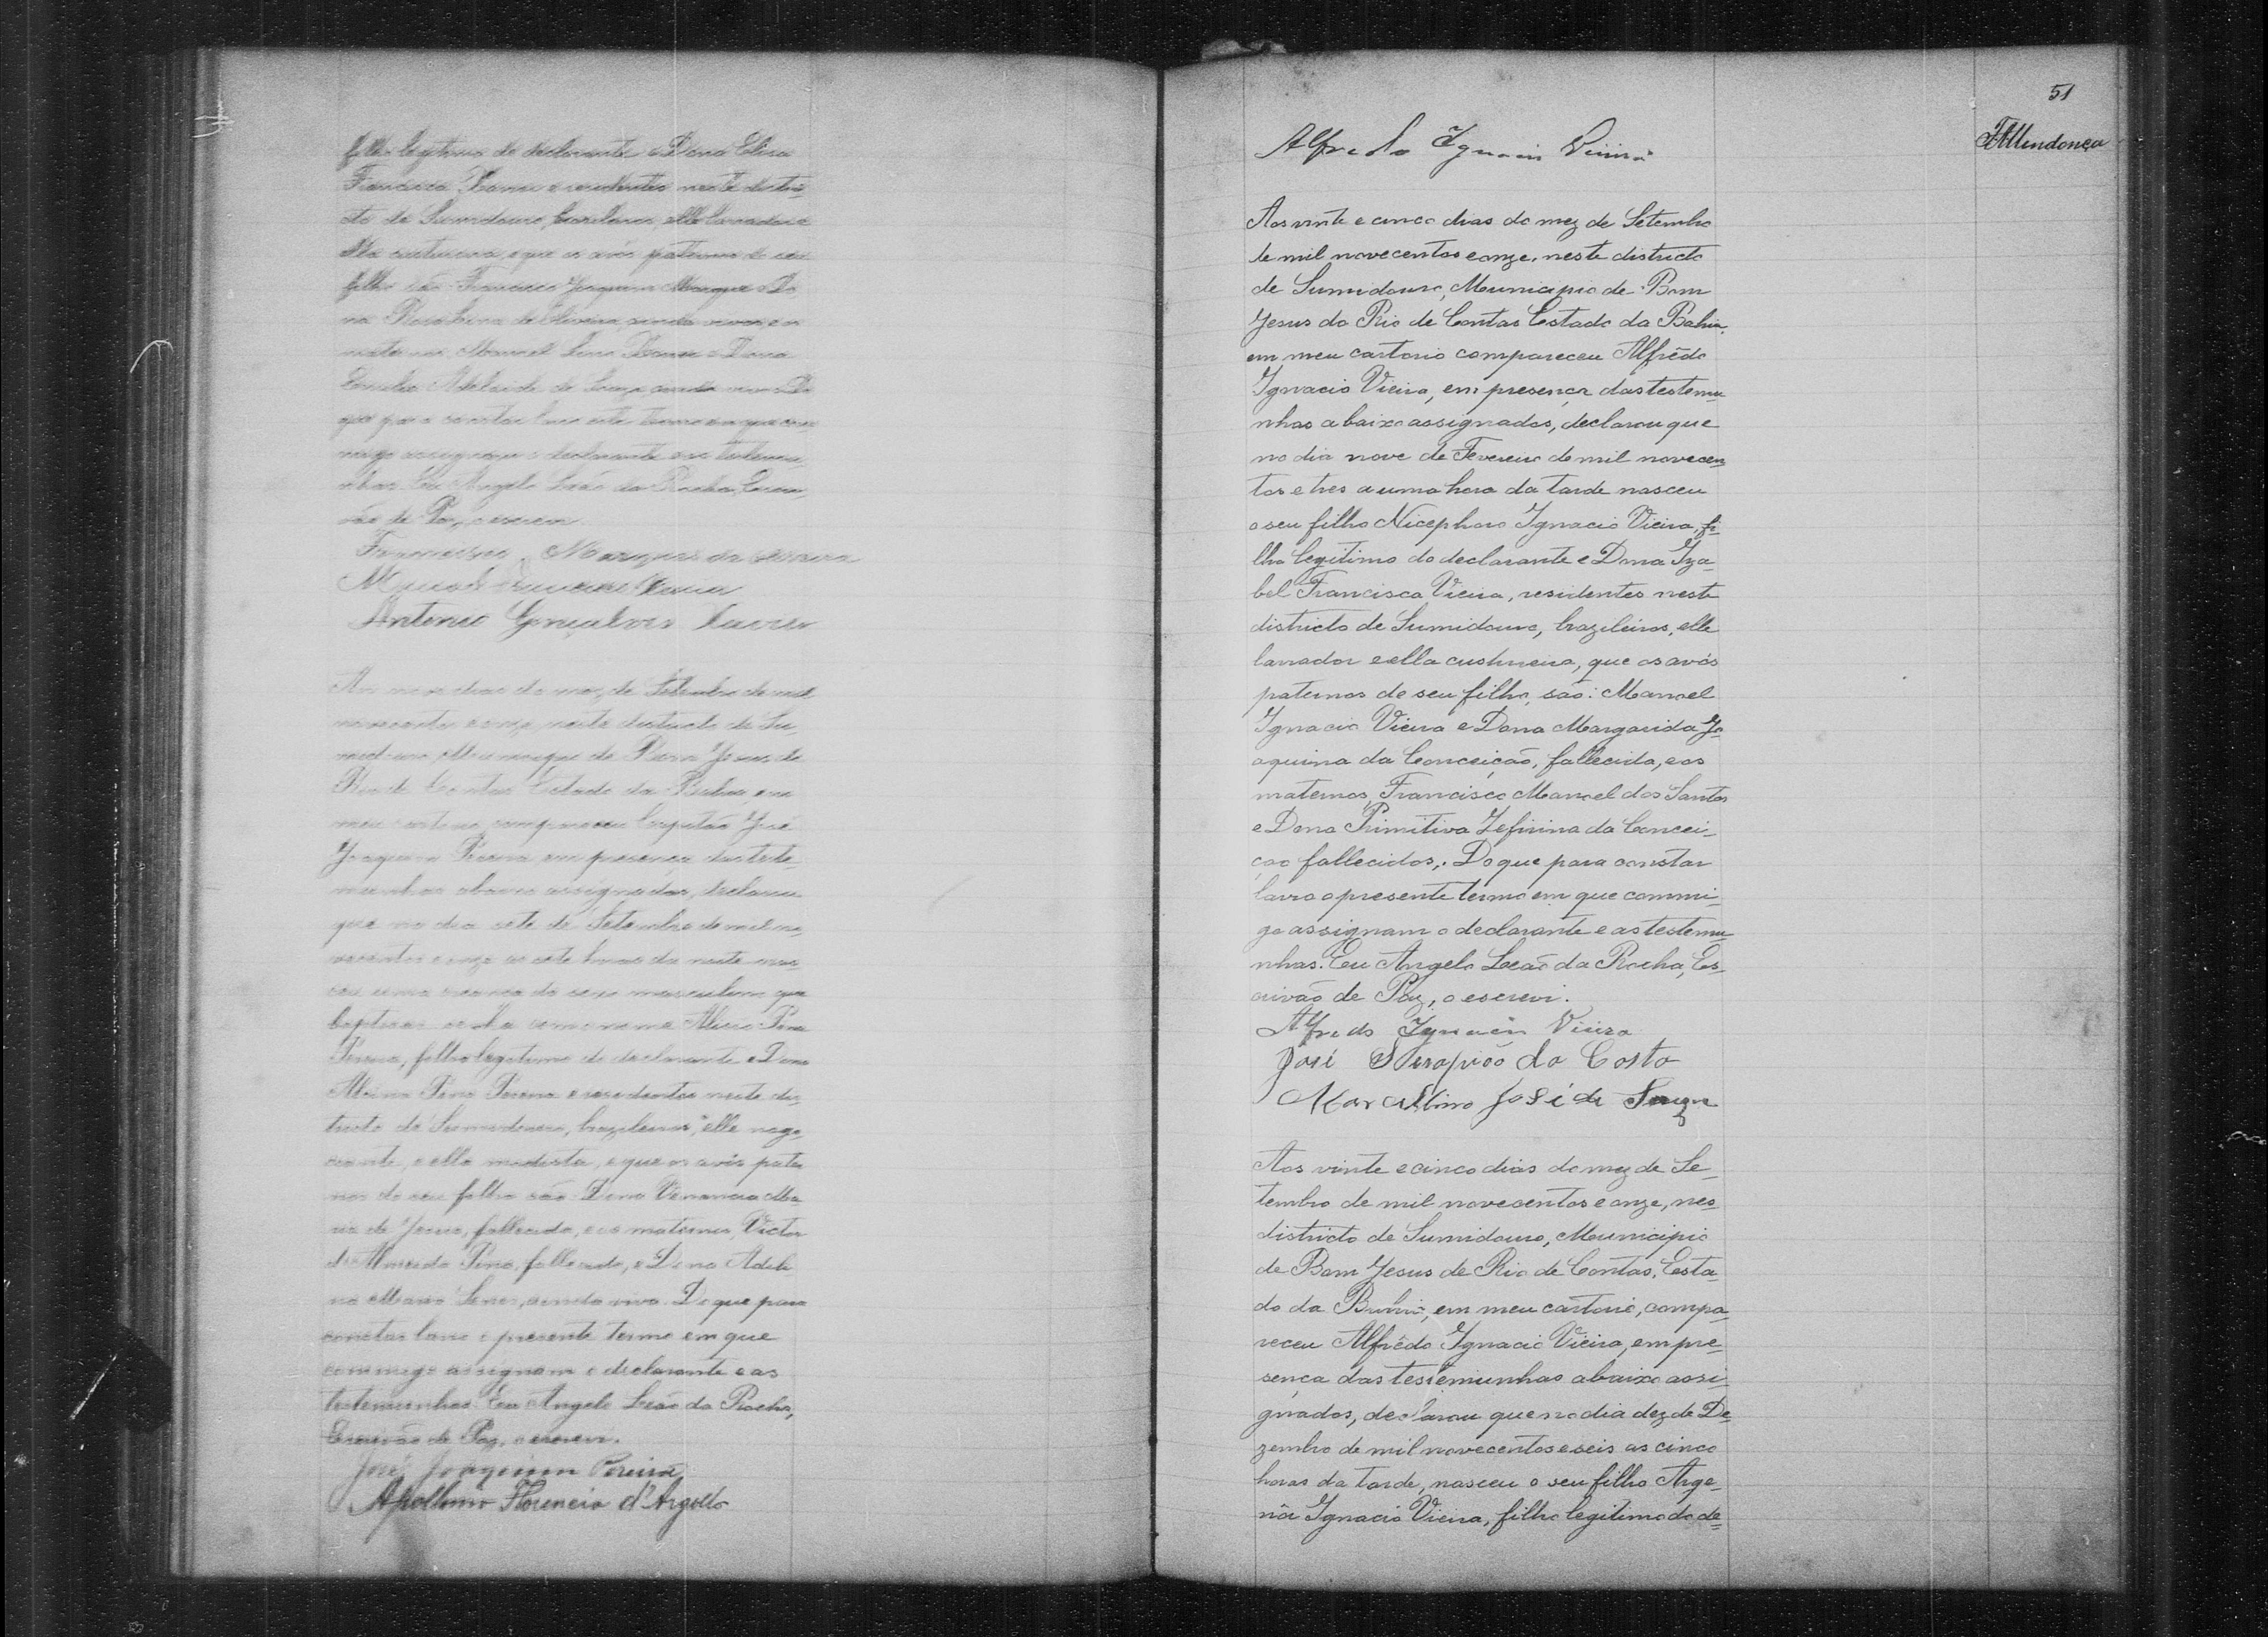 filho legitimo do declarante e Dona Elisa
Francisca e residentes neste distri
cto de Sumidouro, brazileiros, elle lavrador e
ella costureira, e que os avós paternos de seu
filho são Francisco Joaquim Marques e Do
na de Oliveira, ainda vivos, e os
maternos, Manoel Lino e Dona
Emilia Adelaide de Souza ainda vivos. Do
que para constar lavro este termo em que com
migo assignam o declarante e as testemu
nhas. Eu Angelo Leão da Rocha, Escri
vão de Paz, o escrevi.
Francisco Marques de Oliveira
Manoel
Antonio Gonçalves Xavier
Aos nove dias do mez de Setembro de mil
novecentos e onze, neste districto de Su
midouro, Municipio de Bom Jesus do
Rio de Contas Estado da Bahia, em
meu cartorio compareceu Capitão José
Joaquim Pereira em presença das teste
munhas abaixo assignadas, declarou
que no dia sete de Setembro de mil no
vecentos e onze as sete horas da noite nas
ceu uma creança do sexo masculino que
baptisar-se-ha com o nome Pina
Pereira, filho legitimo do declarante e Dona
Pina Pereira e residentes neste dis
tricto de Sumidouro, brazileiros, elle nego
ciante, e ella modista, e que os avós pater
nos do seu filho são: Dona Venancia Ma
ria de Jesus, fallecida, e os maternos, Victor
de Almeida Pina, fallecido, e Dona Adeli
na Maria ainda viva. Do que para
constar lavro o presente termo em que
commigo assignam o declarante e as
testemunhas. Eu Angelo Leão da Rocha,
Escrivão de Paz, o escrevi.
José Joaquim Pereira
Apollinio Florencio d'Argollo
51
Mendonça
Alfredo Ignacio Vieira
Aos vinte e cinco dias do mez de Setembro
de mil novecentos e onze, neste districto
de Sumidouro, Municipio de Bom
Jesus do Rio de Contas Estado da Bahia,
em meu cartorio compareceu Alfrêdo
Ignacio Vieira, em presença das testemu
nhas abaixo assignadas, declarou que
no dia nove de Fevereiro de mil novecen
tos e tres a uma hora da tarde nasceu
o seu filho Nicephoro Ignacio Vieira, fi
lho legitimo do declarante e Dona Iza-
bel Francisca Vieira, residentes neste
districto de Sumidouro, brazileiros, elle
lavrador e ella custureira, que os avós
paternos de seu filho, são: Manoel
Ignacio Vieira e Dona Margarida Jo
aquina da Conceição, fallecida, e os
maternos, Francisco Manoel dos Santos
e Dona Primitiva Zefirina da Concei-
ção fallecidos,. Do que para constar
lavro o presente termo em que commi-
go assignam o declarante e as testemu
nhas. Eu Angelo Leão da Rocha, Es-
crivão de Paz, o escrevi.
Alfredo Ignacio Vieira
José Serapião da Costa
Marcellino José de Souza
Aos vinte e cinco dias do mez de Se-
tembro de mil novesentos e onze, nes
districto de Sumidouro, Municipio
de Bom Jesus do Rio de Contas, Esta-
do da Bahia, em meu cartorio, compa-
receu Alfrêdo Ignacio Vieira, em pre-
sença das testemunhas abaixo assi-
gnados, declarou que no dia dez de De
zembro de mil novecentos e seis as cinco
horas da tarde, nasceu o seu filho Arge-
nôr Ignacio Vieira, filho legitimo do de